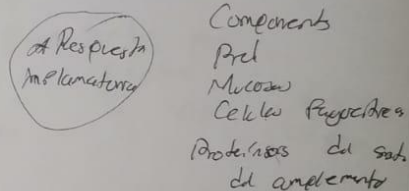 Respuesta
Inflamatoria
Components
Piel
Mucosas
Celulas Fagocíticas
Proteínas del sist.
del complemento